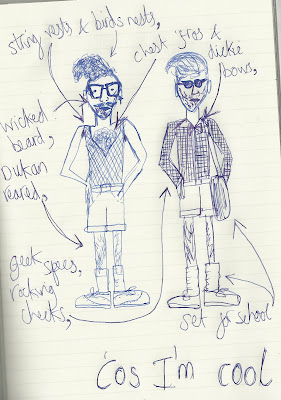 string vests & birds nests,
chest 'fros &
dickie
bows,
wicked
beard,
Dukan
reared,
geek
specs,
rocking
checks,
set for school
'cos I'm cool